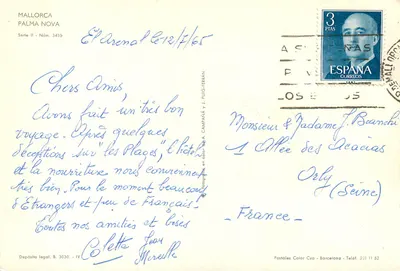 MALLORCA
PALMA NOVA
Serie V - Núm. 5456
El Arenal le 12/7/65
Chers Amis,
Avons fait un très bon
voyage. Après quelques
déceptions sur "les Plages", l'hôtel
et la nourriture nous conviennent
très bien. Pour le moment beaucoup
d'Etrangers et peu de Français.
Toutes nos amitiés et bises
Colette Jean
Mireille
3
PTAS
ESPAÑA
CORREOS
Monsieur & Madame J. Bianchi
1 Allée des Acacias
Orly
(Seine)
- France -
Depósito legal: B. 3035 - IX
Postales Color Cas - Barcelona - Teléf.